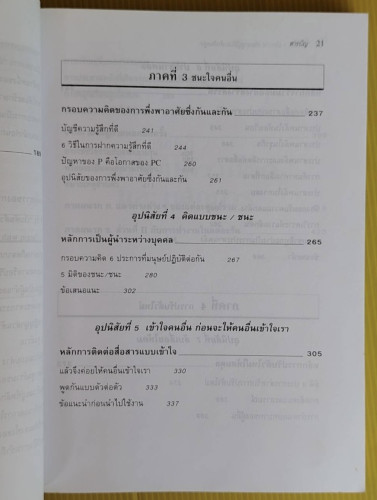 สารบัญ 21
ภาคที่ 3 ชนะใจคนอื่น
กรอบความคิดของการพึ่งพาอาศัยซึ่งกันและกัน 237
บัญชีความรู้สึกที่ดี 241
6 วิธีในการฝากความรู้สึกที่ดี 244
ปัญหาของ P คือโอกาสของ PC 260
อุปนิสัยของการพึ่งพาอาศัยซึ่งกันและกัน 261
อุปนิสัยที่ 4 คิดแบบชนะ / ชนะ
หลักการเป็นผู้นำระหว่างบุคคล 265
กรอบความคิด 6 ประการที่มนุษย์ปฏิบัติต่อกัน 267
5 มิติของชนะ/ชนะ 280
ข้อเสนอแนะ 302
อุปนิสัยที่ 5 เข้าใจคนอื่น ก่อนจะให้คนอื่นเข้าใจเรา
หลักการติดต่อสื่อสารแบบเข้าใจ 305
แล้วจึงค่อยให้คนอื่นเข้าใจเรา 330
พูดกันแบบตัวต่อตัว 333
ข้อแนะนำก่อนนำไปใช้งาน 337